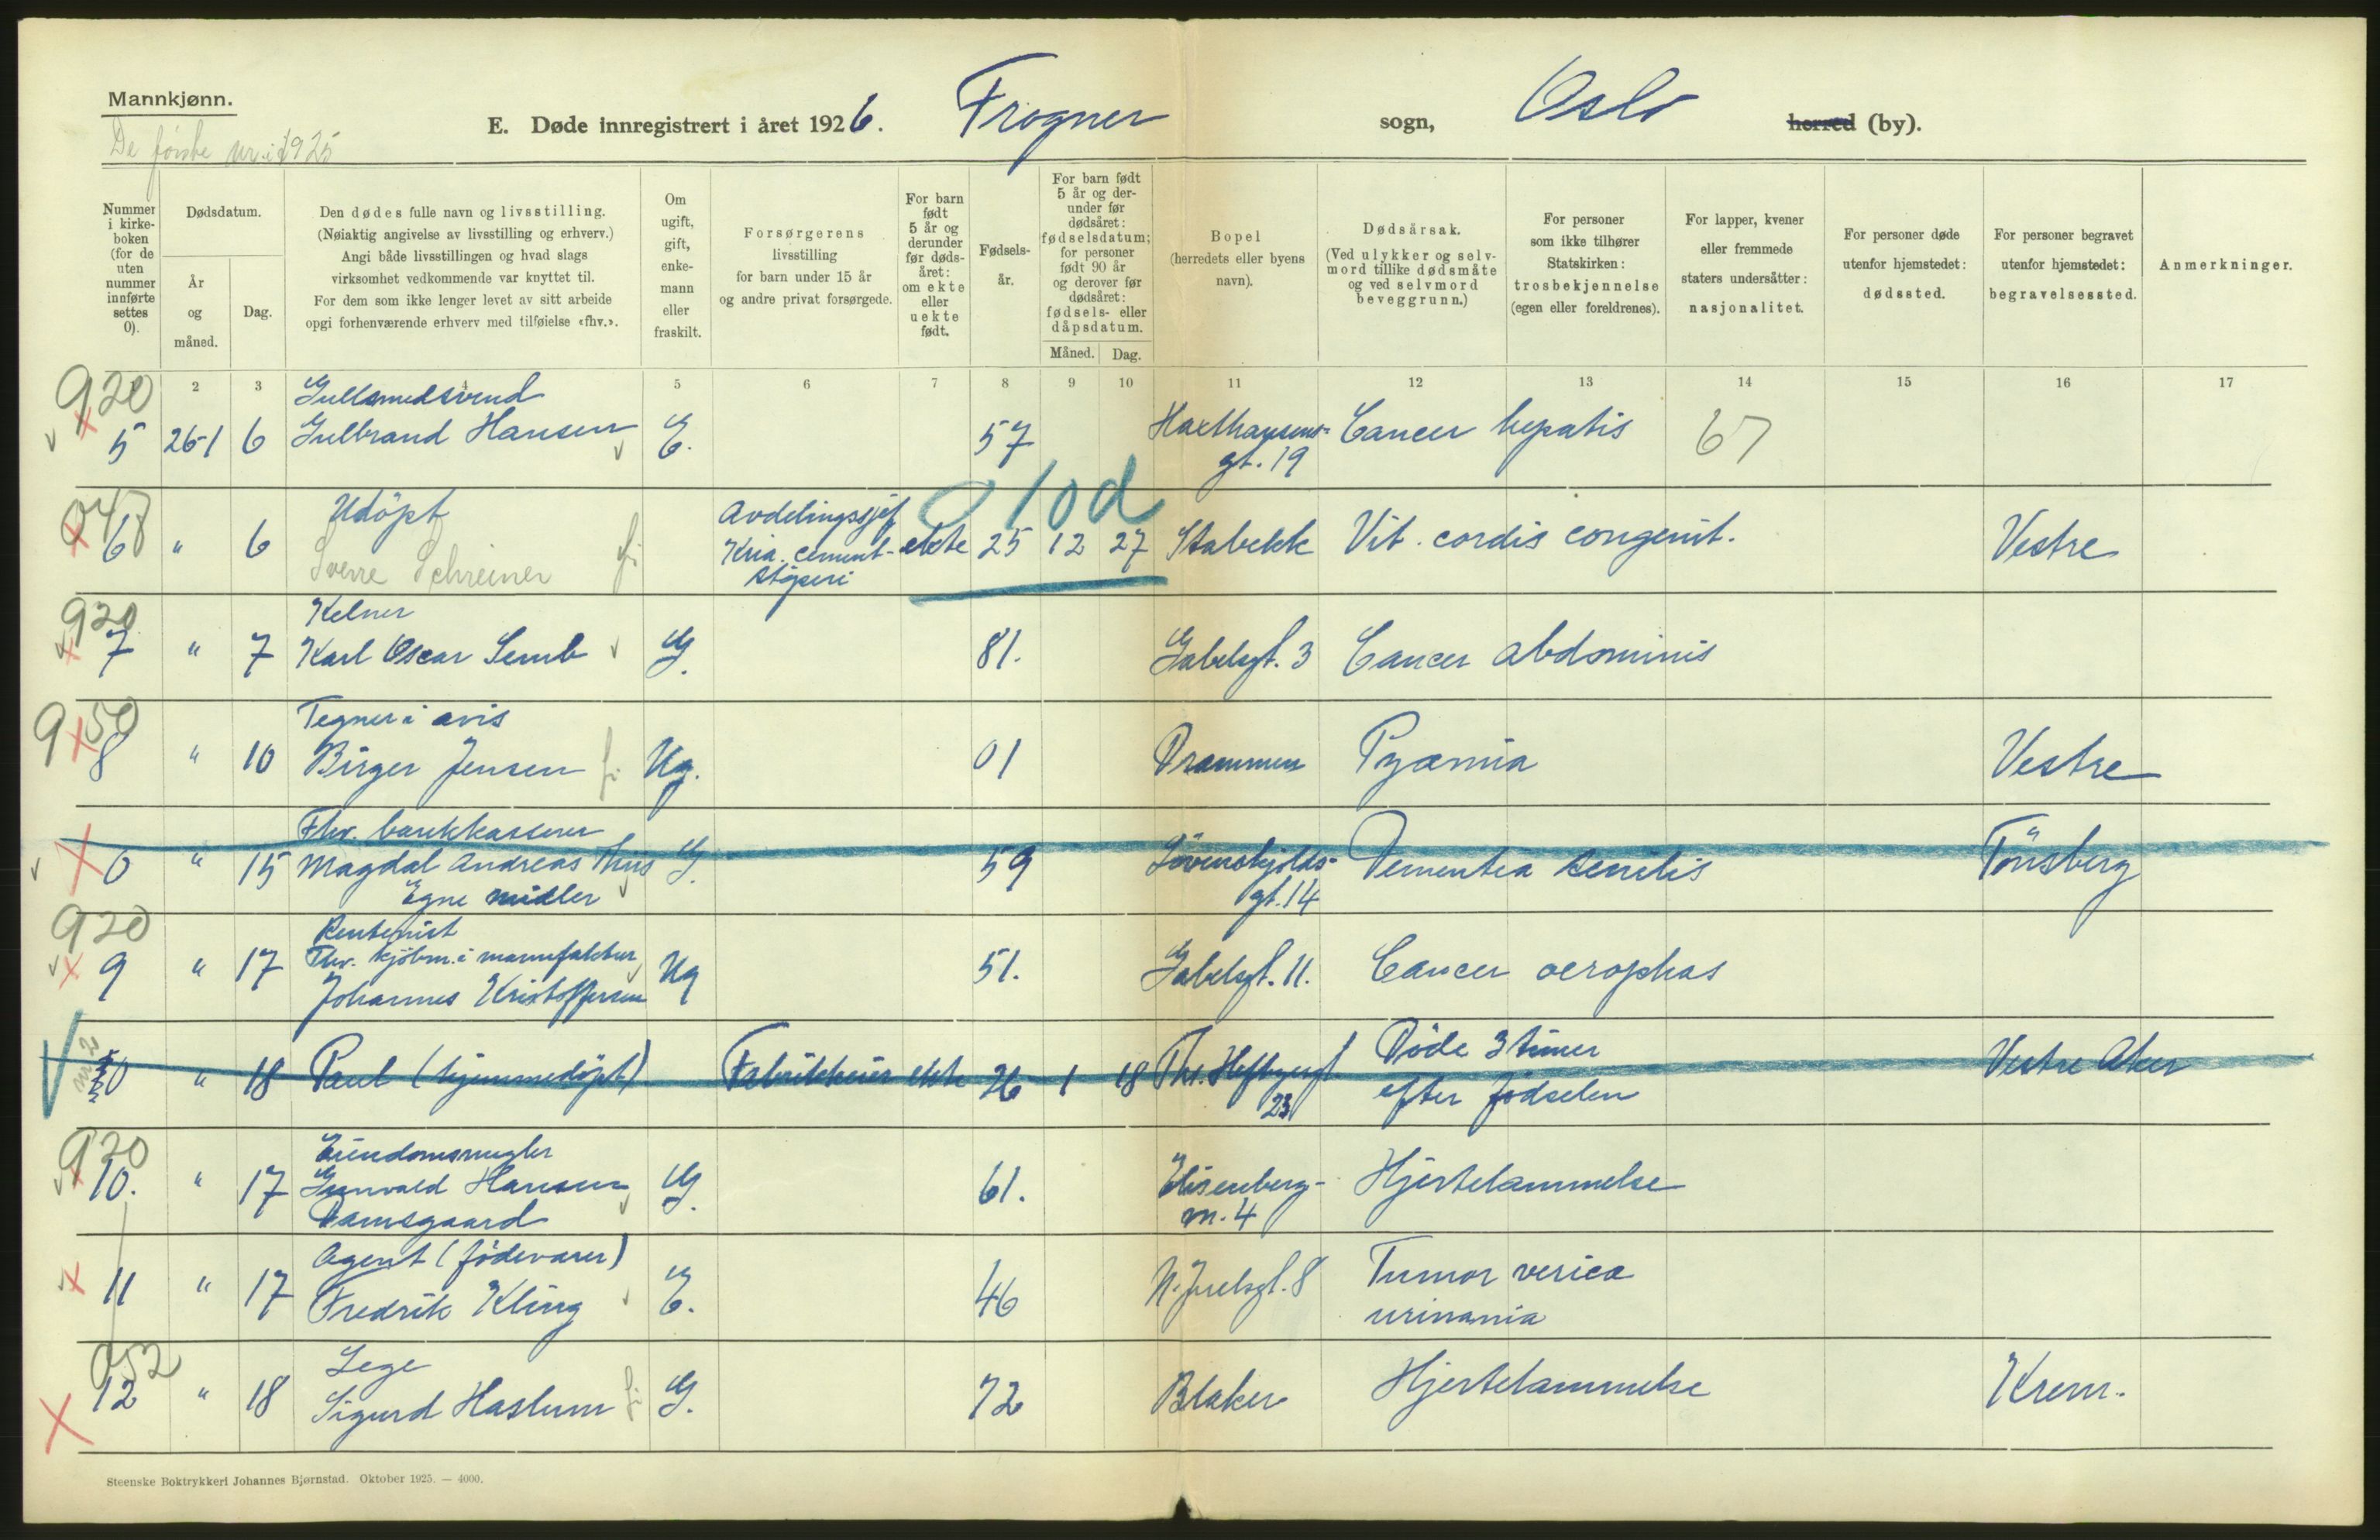 Mannkjønn.
De første nr. i 1925
E. Døde innregistrert i året 1926. Frogner sogn, Oslo herred (by).
Nummer i kirkeboken (for de uten nummer innførte settes 0).
Dødsdatum.
År og måned.
Dag.
Den dødes fulle navn og livsstilling.
(Nøiaktig angivelse av livsstilling og erhverv.)
Angi både livsstillingen og hvad slags
virksomhet vedkommende var knyttet til.
For dem som ikke lenger levet av sitt arbeide
opgi forhenværende erhverv med tilføielse «fhv.».
Om ugift, gift, enkemann eller fraskilt.
Forsørgerens
livsstilling
for barn under 15 år
og andre privat forsørgede.
For barn født 5 år og derunder før dødsåret: om ekte eller uekte født.
Fødselsår.
For barn født 5 år og derunder før dødsåret: fødselsdatum; for personer født 90 år og derover før dødsåret: fødsels- eller dåpsdatum.
Måned. Dag.
Bopel
(herredets eller byens
navn).
Dødsårsak.
(Ved ulykker og selvmord tillike dødsmåte og ved selvmord beveggrunn.)
For personer
som ikke tilhører
Statskirken:
trosbekjennelse
(egen eller foreldrenes).
For lapper, kvener
eller fremmede
staters undersåtter:
nasjonalitet.
For personer døde
utenfor hjemstedet:
dødssted.
For personer begravet
utenfor hjemstedet:
begravelsessted.
Anmerkninger.
2 3 4 5 6 7 8 9 10 11 12 13 14 15 16 17
920
Gullsmedsvend
5 26-1 6 Gulbrand Hansen E. 57 Haxthausens- Cancer hepatis 67
gt. 19
10d
Udöpt Avdelingssjef
6 " 6 Sverre Schreiner Kria. cement- ekte 25 12 27 Stabekk Vit. cordis congenit. Vestre
støperi
920
Kelner
7 " 7 Karl Oscar Semb G. 81. Gabelsgt. 3 Cancer abdominis
950
Tegner i avis
8 " 10 Birger Jensen Ug. 01 Drammen Pyæmia Vestre
Fhv. bankkasserer
0 " 15 Magdal Andreas G. 59 Løvenskjolds- Dementia senilis Tönsberg
Egne midler gt. 14
920
Rentenist
Fhv. kjöbm. i manufaktur
9 " 17 Johannes Kristoffersen Ug 51. Gabelsgt. 11. Cancer oerophas
0 " 18 Paul (hjemmedöpt) Fabrikkeier ekte 26 1 18 Th. Heftyesgt Döde 3 timer Vestre Aker
23 efter födselen
920
Eiendomsmegler
10. " 17 Gunvald Hansen G. 61. Elisenberg- Hjertelammelse
Damsgaard v. 4
Agent (födevarer)
11 " 17 Fredrik Kling E. 46 N. Juelsgt. 8 Tumor vesica
urinaria
052
Lege
12 " 18 Sigurd Haslum G. 72 Blaker Hjertelammelse Krem.
Steenske Boktrykkeri Johannes Bjørnstad. Oktober 1925. — 4000.